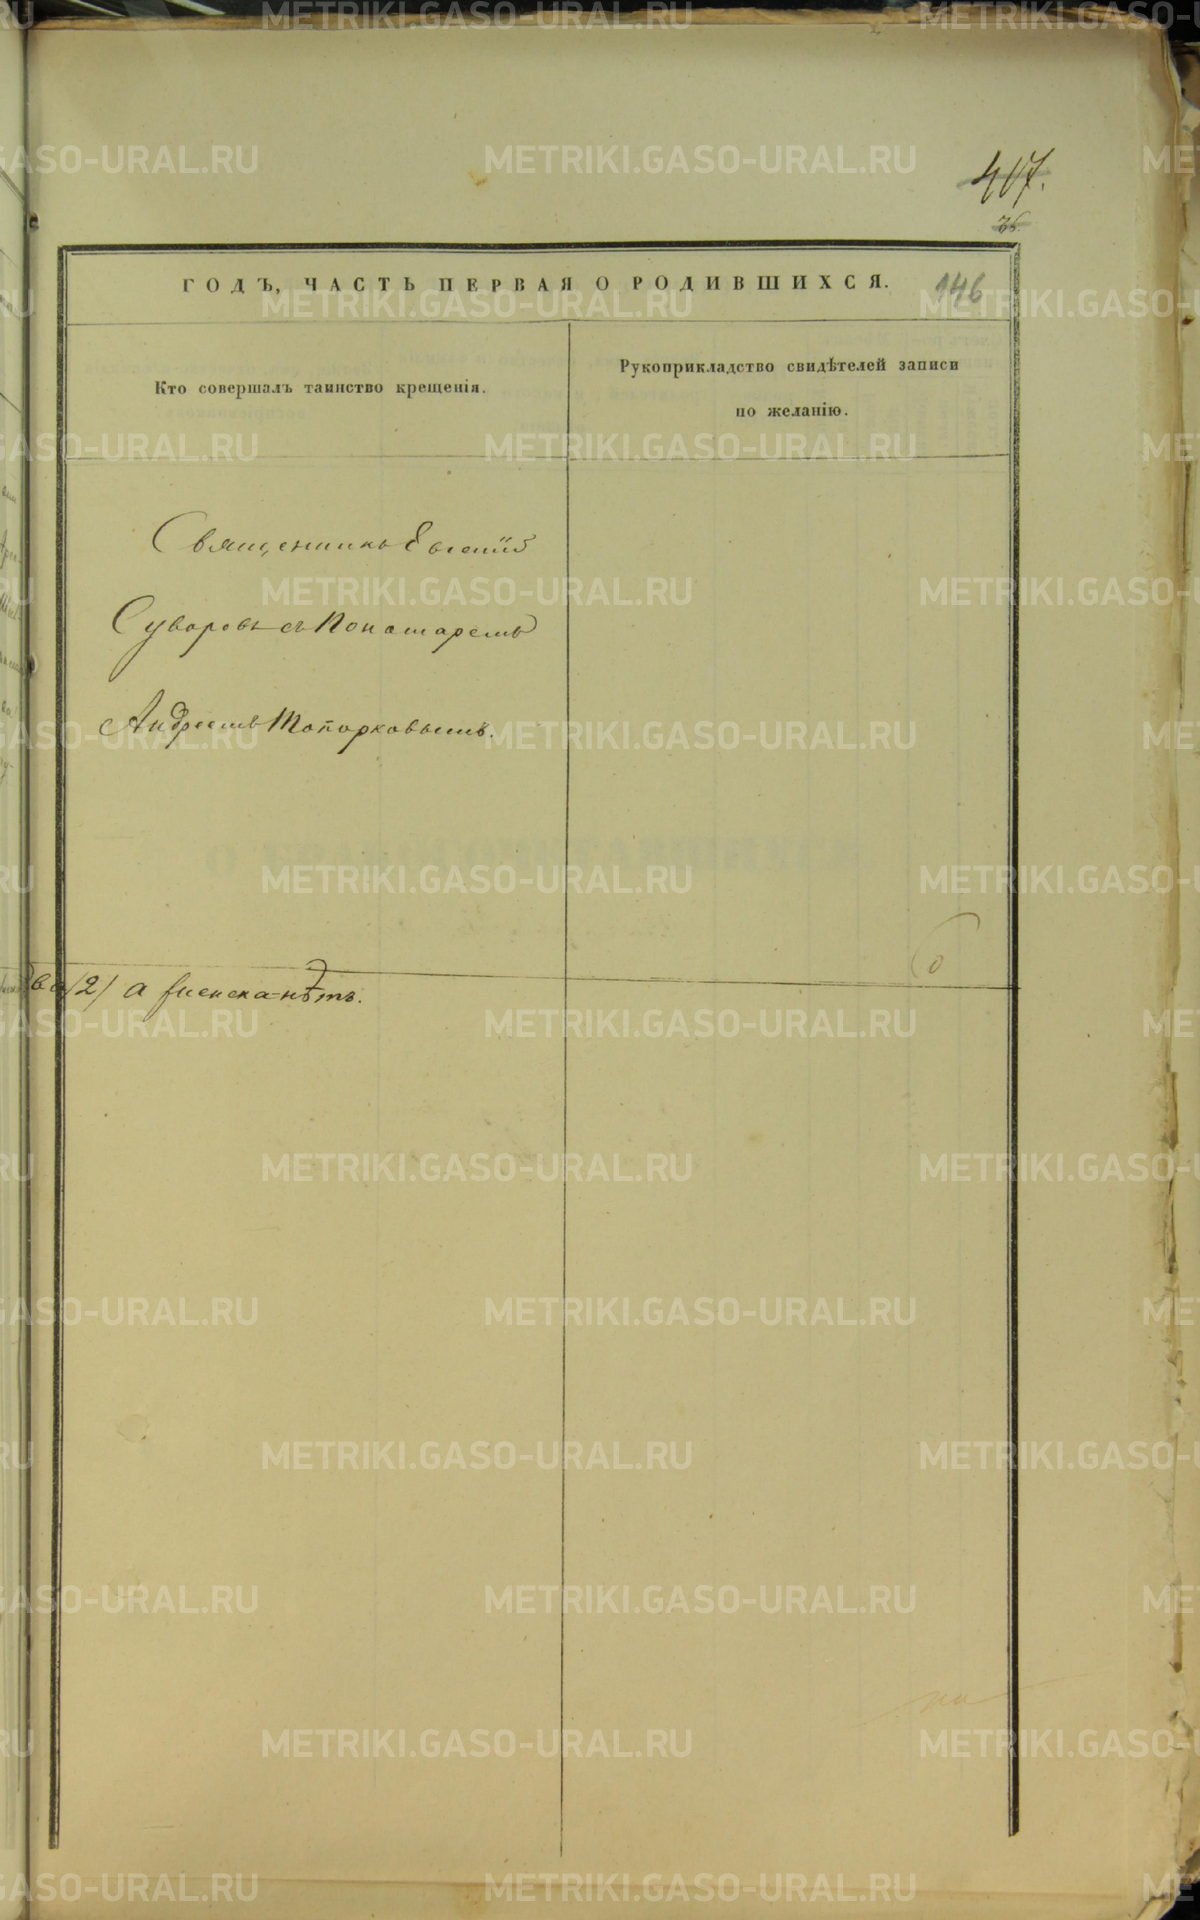 407.
36.
ГОДЪ, ЧАСТЬ ПЕРВАЯ О РОДИВШИХСЯ. 146
Кто совершалъ таинство крещенія.
Рукоприкладство свидѣтелей записи
по желанію.
Священникъ Евгеній
Суворовъ съ Пономаремъ
Андреемъ Топорковымъ.
ва /2/ а женска нѣтъ.
METRIKI.GASO-URAL.RU